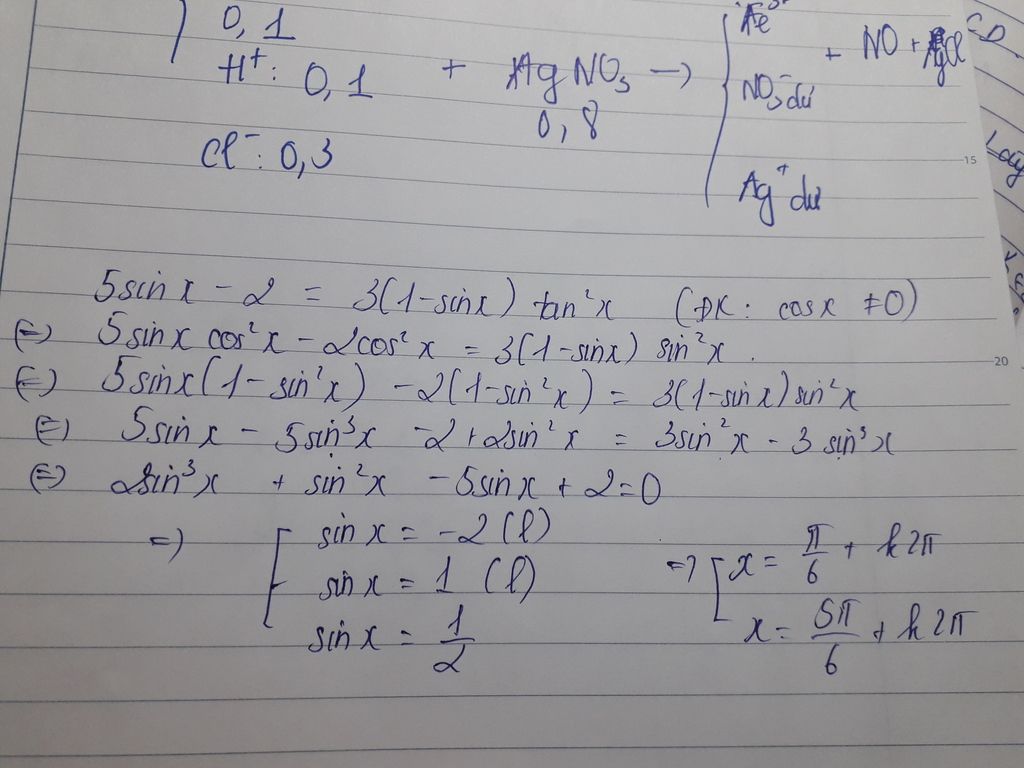 0,1
H⁺: 0,1 + AgNO₃ → Fe³⁺ + NO + AgCl
0,8 NO₃⁻ dư
Cl⁻: 0,3 Ag⁺ dư
15
Lấy
5sinx - 2 = 3(1-sinx) tan²x (ĐK: cosx ≠0)
(=) 5sinx cos²x - 2cos²x = 3(1-sinx) sin²x.
20
(=) 5sinx(1-sin²x) - 2(1-sin²x) = 3(1-sinx)sin²x
(=) 5sinx - 5sin³x - 2 + 2sin²x = 3sin²x - 3sin³x
(=) 2sin³x + sin²x - 5sinx + 2 = 0
=) [ sinx = -2 (l)
sinx = 1 (l) => [ x = π/6 + k2π
sinx = 1/2 x = 5π/6 + k2π